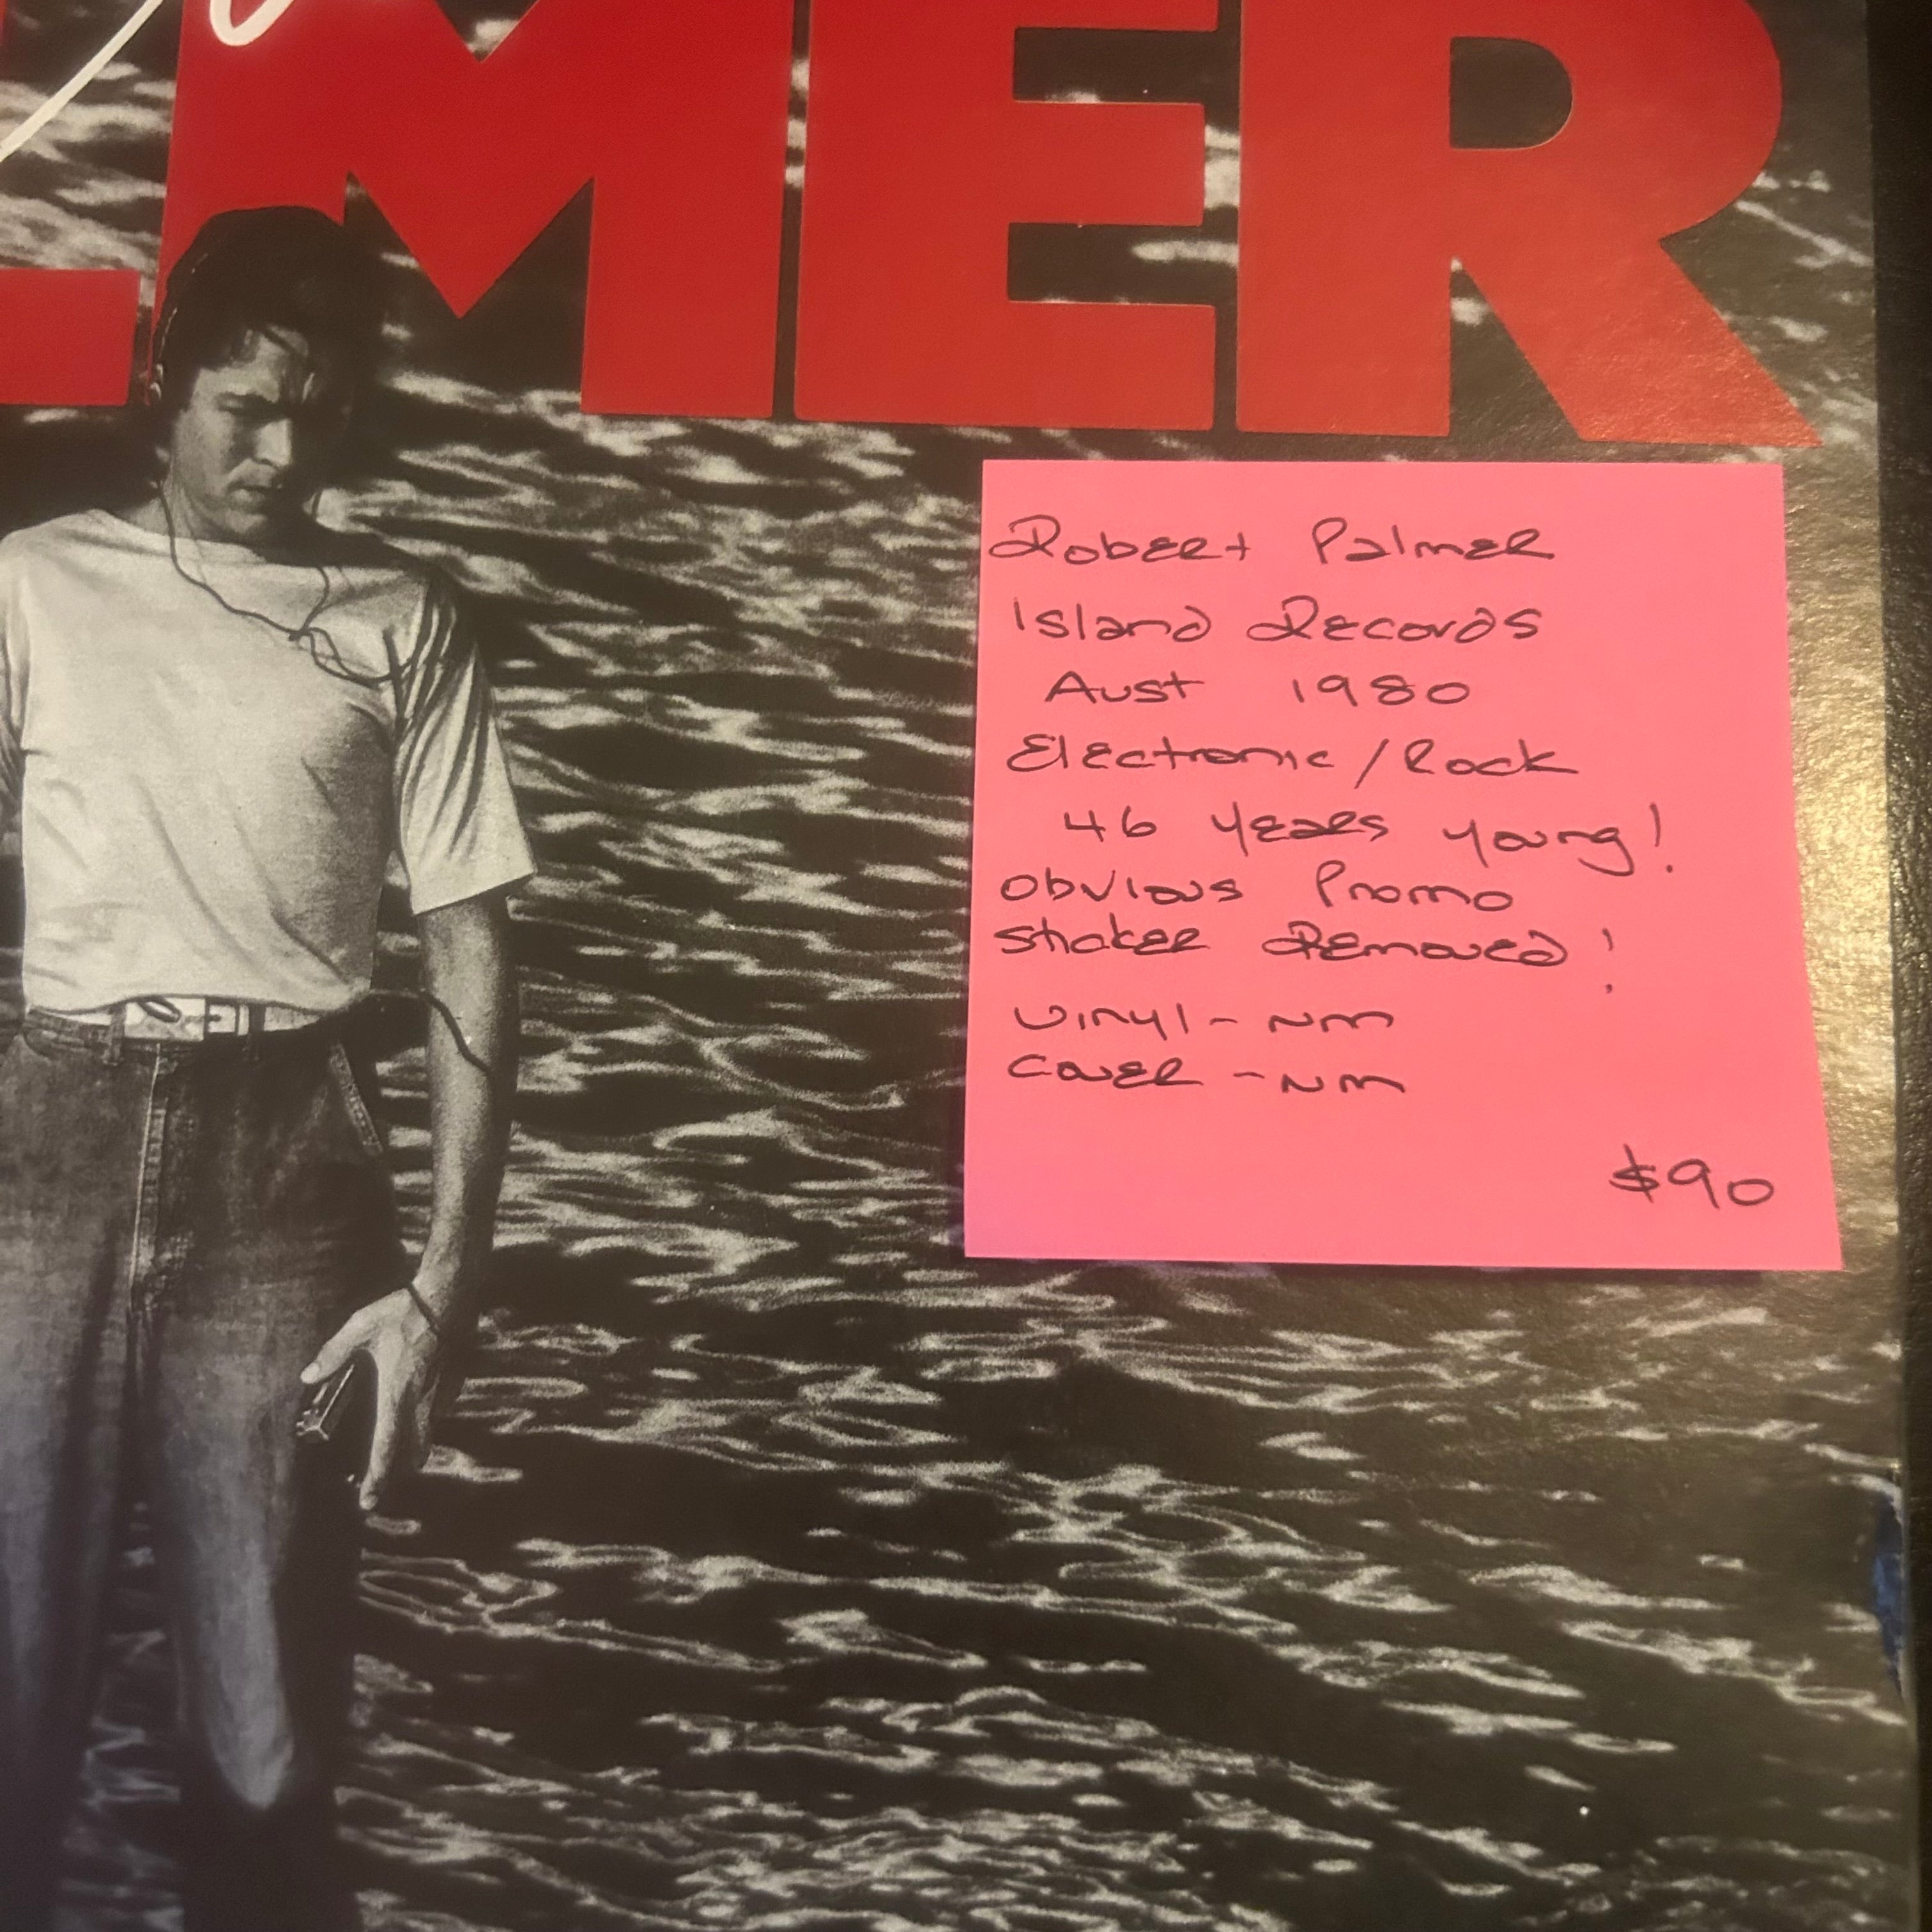 LMER
Robert Palmer
Island Records
Aust 1980
Electronic/Rock
46 years young!
Obvious Promo
Sticker Removed!
Vinyl - NM
Cover - NM
$90